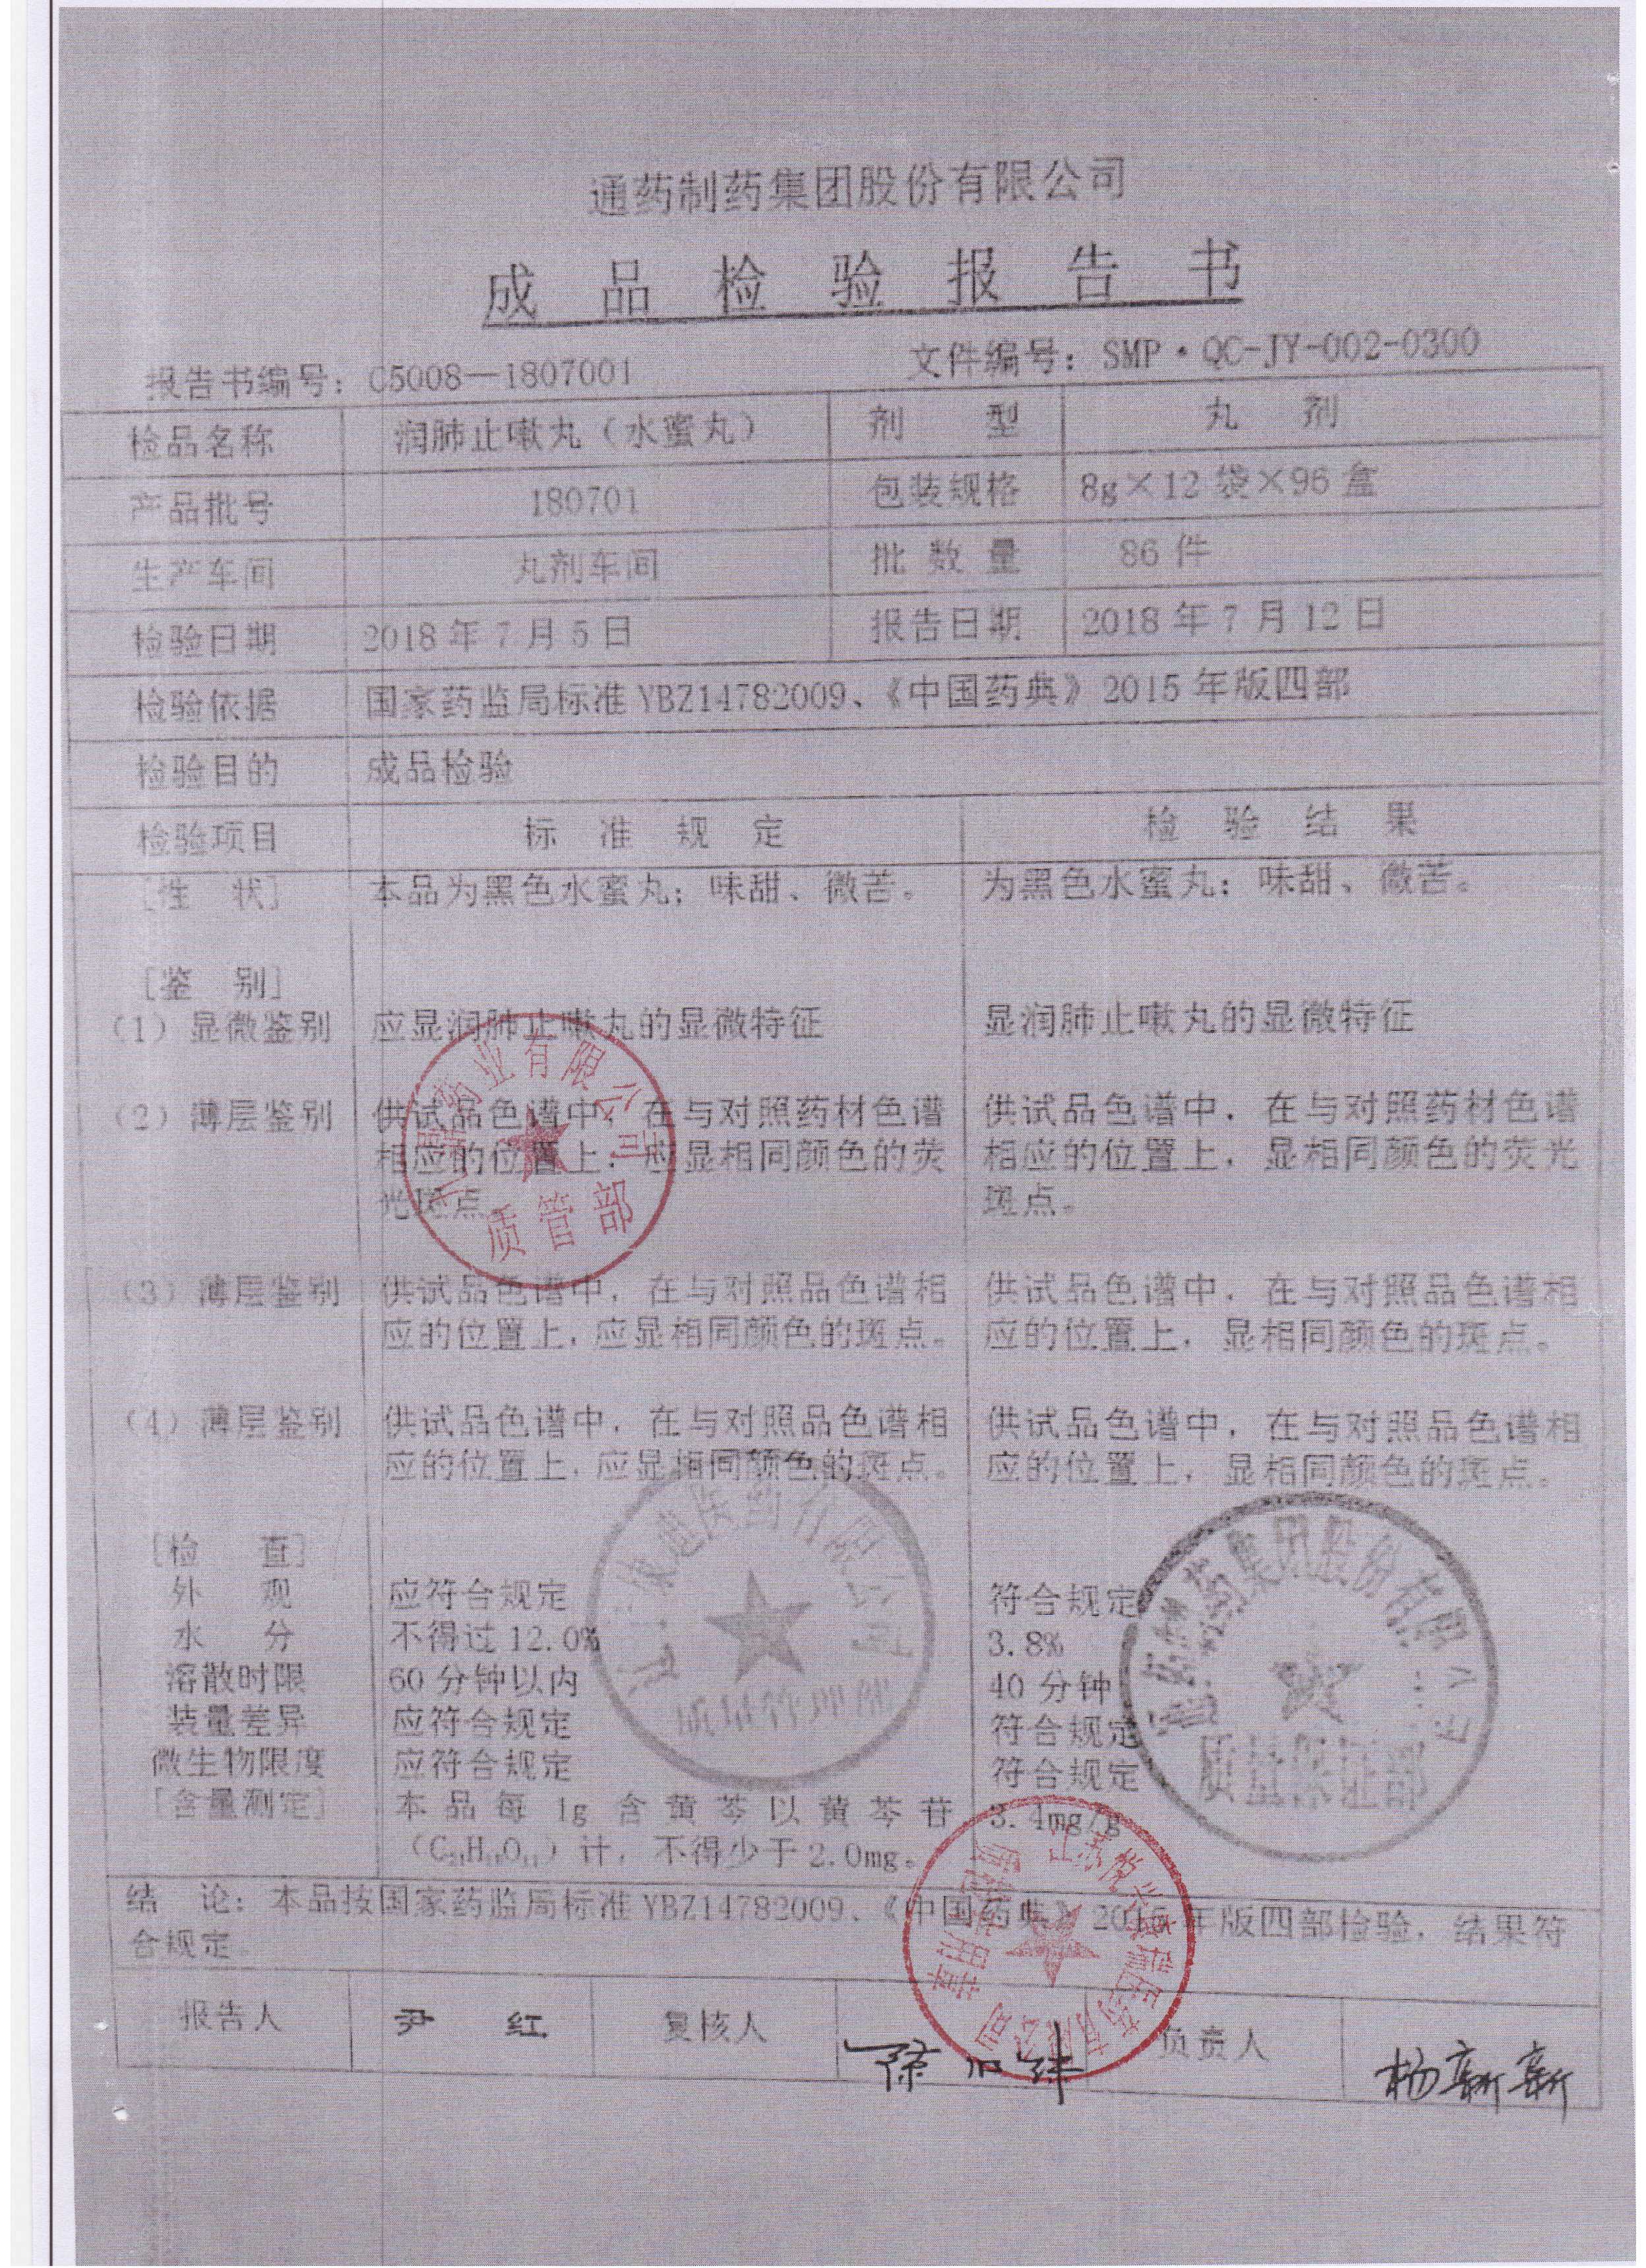 通药制药集团股份有限公司
成品检验报告书
报告书编号：C5008—1807001 文件编号：SMP·QC-JY-002-0300
检品名称 润肺止嗽丸（水蜜丸） 剂 型 丸 剂
产品批号 180701 包装规格 8g×12袋×96盒
生产车间 丸剂车间 批数量 86件
检验日期 2018年7月5日 报告日期 2018年7月12日
检验依据 国家药监局标准YBZ14782009、《中国药典》2015年版四部
检验目的 成品检验
检验项目 标准规定 检验结果
[性 状] 本品为黑色水蜜丸；味甜、微苦。 为黑色水蜜丸；味甜、微苦。
[鉴 别]
（1）显微鉴别 应显润肺止嗽丸的显微特征 显润肺止嗽丸的显微特征
（2）薄层鉴别 供试品色谱中，在与对照药材色谱 供试品色谱中，在与对照药材色谱
相应的位置上，应显相同颜色的荧 相应的位置上，显相同颜色的荧光
光斑点。 斑点。
（3）薄层鉴别 供试品色谱中，在与对照品色谱相 供试品色谱中，在与对照品色谱相
应的位置上，应显相同颜色的斑点。 应的位置上，显相同颜色的斑点。
（4）薄层鉴别 供试品色谱中，在与对照品色谱相 供试品色谱中，在与对照品色谱相
应的位置上，应显相同颜色的斑点。 应的位置上，显相同颜色的斑点。
[检 查]
外 观 应符合规定 符合规定
水 分 不得过12.0% 3.8%
溶散时限 60分钟以内 40分钟
装量差异 应符合规定 符合规定
微生物限度 应符合规定 符合规定
[含量测定] 本品每1g含黄芩以黄芩苷 3.4mg/g
（C₂₁H₁₈O₁₁）计，不得少于2.0mg。
结 论：本品按国家药监局标准YBZ14782009、《中国药典》2015年版四部检验，结果符
合规定。
报告人 尹红 复核人 负责人 杨新新
药业有限公司
质管部
医药有限公司
质量管理部
通药制药集团股份有限公司
质量保证部
医药有限公司